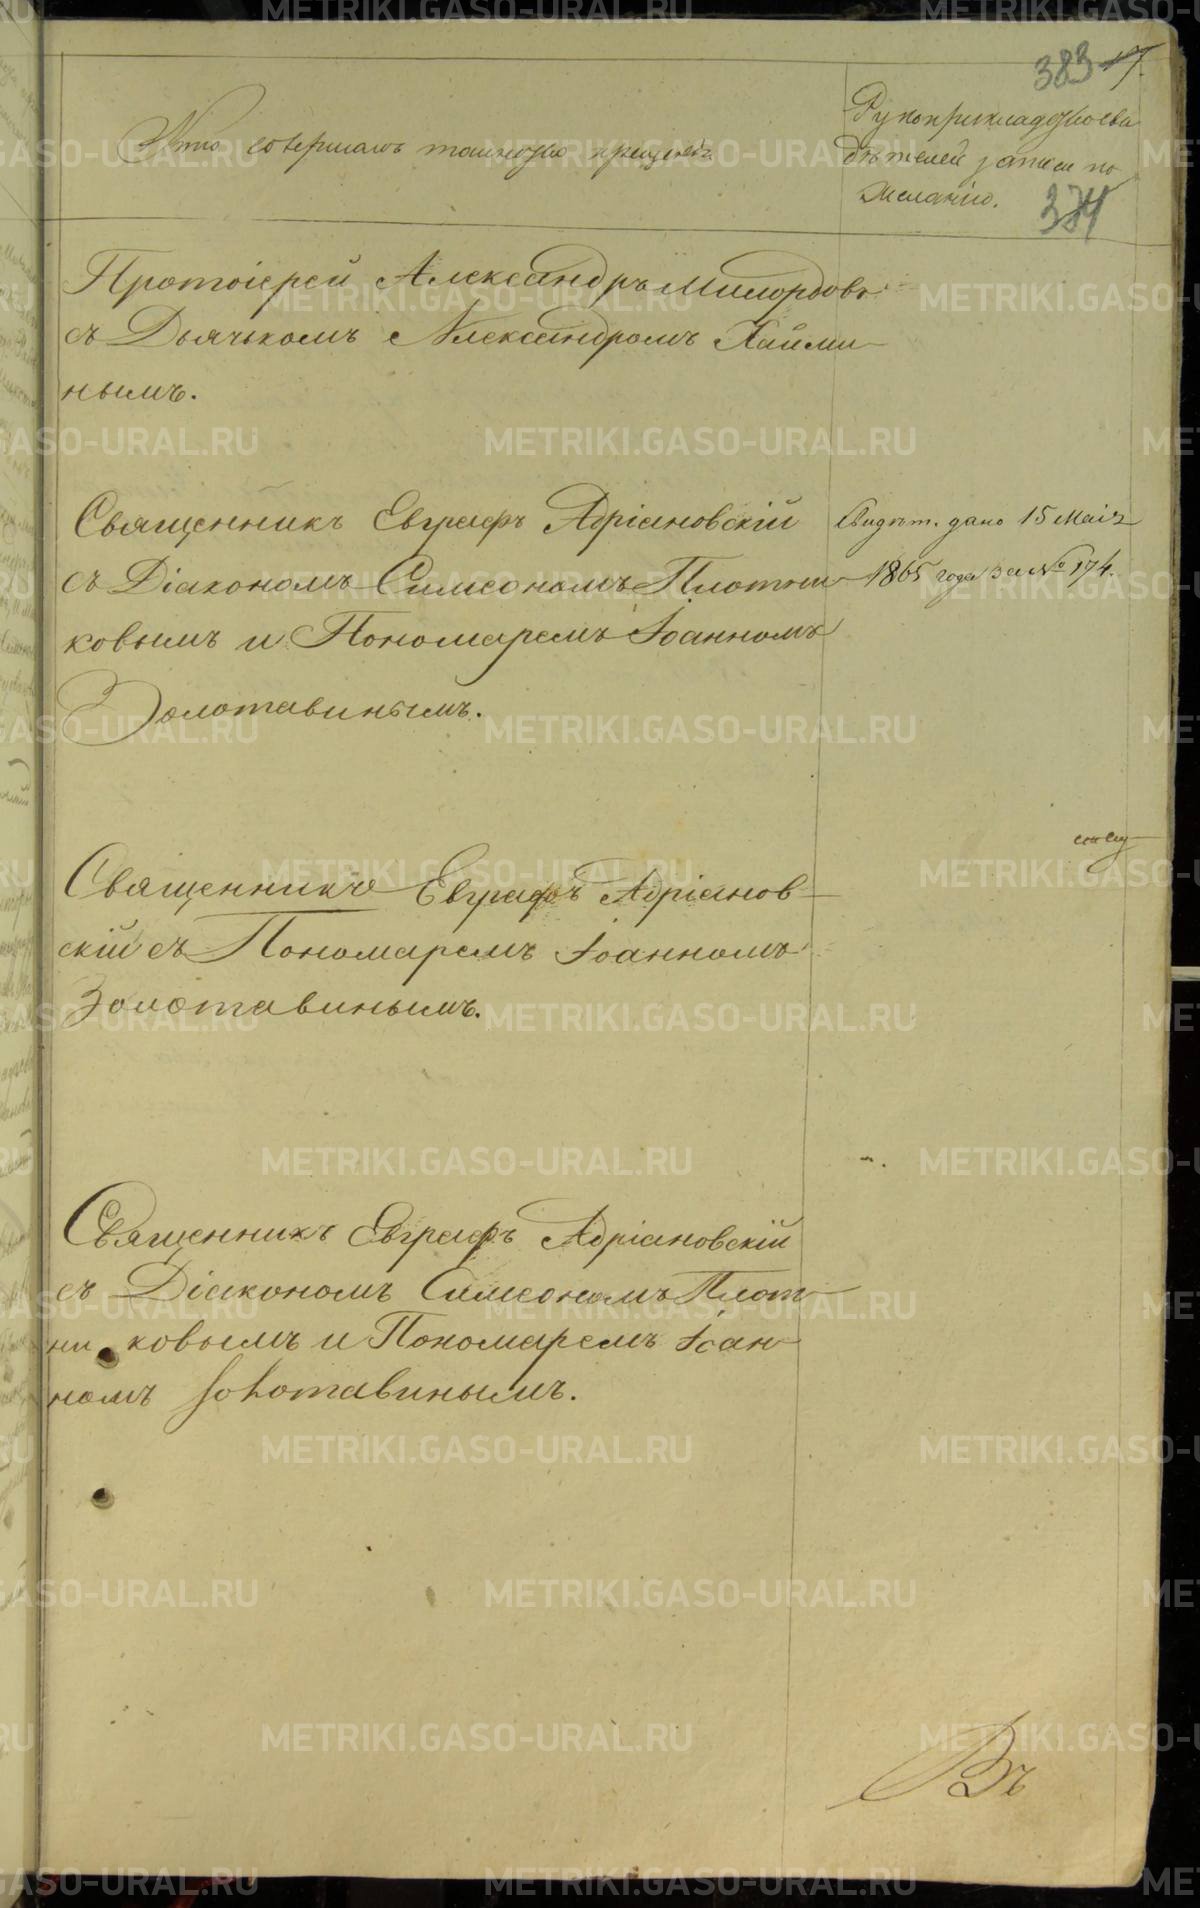 383 17.
Кто совершалъ таинство крещенія
Рукоприкладство сви
дѣтелей записи по
желанію.
374
Протоіерей Александръ Милордовъ
съ Дьячькомъ Александромъ Хайми
нымъ.
Священникъ Евграфъ Адріановскій
съ Діакономъ Симеономъ Плотни
ковымъ и Пономаремъ Іоанномъ
Золотавинымъ.
Свидѣт. дано 15 Маія
1865 года за № 174.
Священникъ Евграфъ Адріанов
скій съ Пономаремъ Іоанномъ
Золотавинымъ.
Священникъ Евграфъ Адріановскій
съ Діакономъ Симеономъ Плот
ни ковымъ и Пономаремъ Іоан
номъ Золотавинымъ.
Въ
METRIKI.GASO-URAL.RU